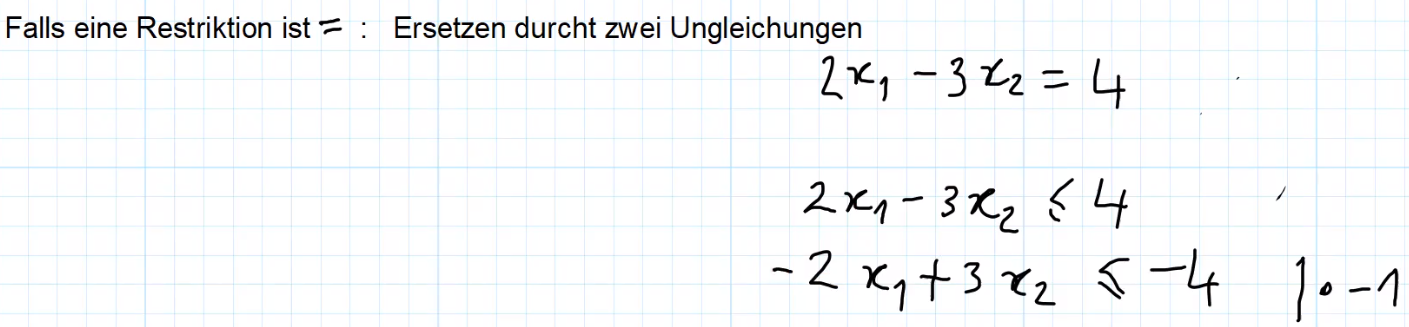 Falls eine Restriktion ist = : Ersetzen durcht zwei Ungleichungen
2x₁ - 3x₂ = 4
2x₁ - 3x₂ ≤ 4
-2x₁ + 3x₂ ≤ -4 |• -1